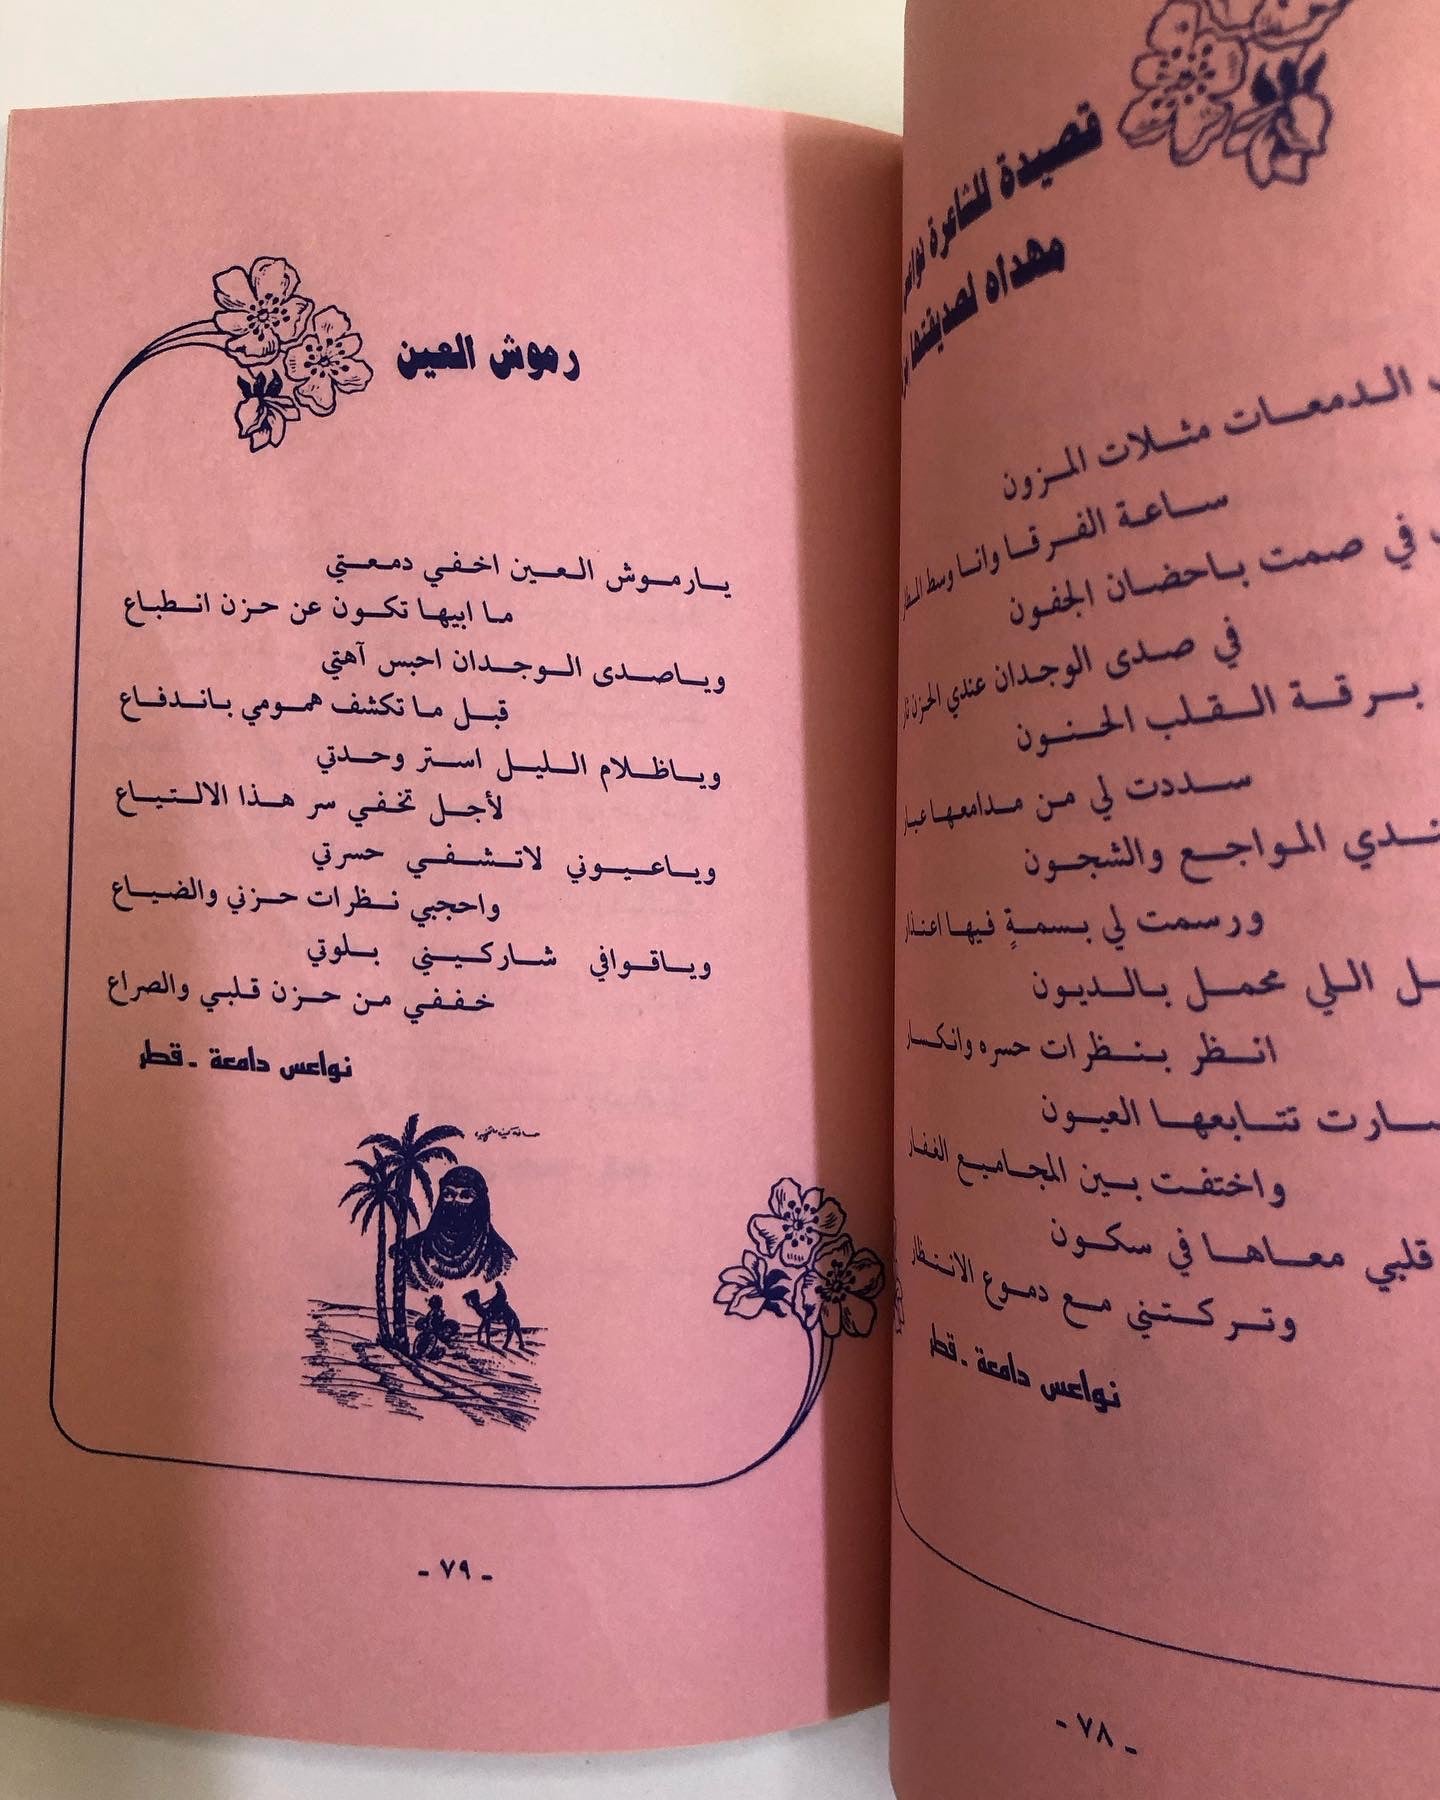 قصيدة للشاعرة
مهداه لصديقتها
الـدمعـات مثـلات المـزون
ساعـة الفـرقـا وانـا وسط
في صمت بـاحضـان الجفون
في صـدى الوجـدان عندي الحزن
بـرقـة الـقـلب الحـنـون
سـددت لي مـن مـدامعهـا
المـواجـع والشجـون
ورسمت لي بسمةٍ فيها اعتذار
اللي محمـل بـالـديون
انـظر بـنـظرات حسره وانكسار
تتـابعهـا العيون
واختفت بـين المجـاميـع الغفار
قلبي معـاهـا في سكـون
وتـركـتني مـع دموع الانتظار
نواعس دامعة - قطر
- ٧٨ -
رموش العين
يـارمـوش الـعـين اخـفـي دمـعـتي
مـا ابيهـا تكـون عن حـزن انـطباع
ويـاصـدى الـوجـدان احبس آهتي
قبـل مـا تكشف همومي بـانـدفـاع
ويـاظـلام الـليـل استر وحـدتي
لأجـل تخـفي سر هـذا الالـتيـاع
ويـاعـيـوني لاتـشـفـي حسرتي
واحجبي نـظرات حـزني والضيـاع
ويـاقـوافي شـاركـيـني بـلوتي
خـفـفي مـن حـزن قـلبي والصراع
نواعس دامعة - قطر
- ٧٩ -